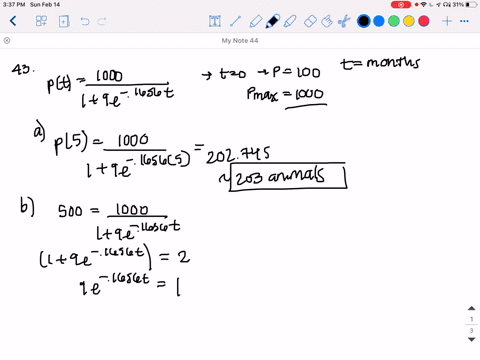 3:37 PM Sun Feb 14
31%
My Note 44
43. p(t) = 1000 / 1+9e^-.1656t → t=0 → P = 100 t = months
Pmax = 1000
a) p(5) = 1000 / 1+9e^-.1656(5) = 202.745
~ 203 animals
b) 500 = 1000 / 1+9e^-.1656t
(1+9e^-.1656t) = 2
9e^-.1656t = 1
1
3
My Note 44